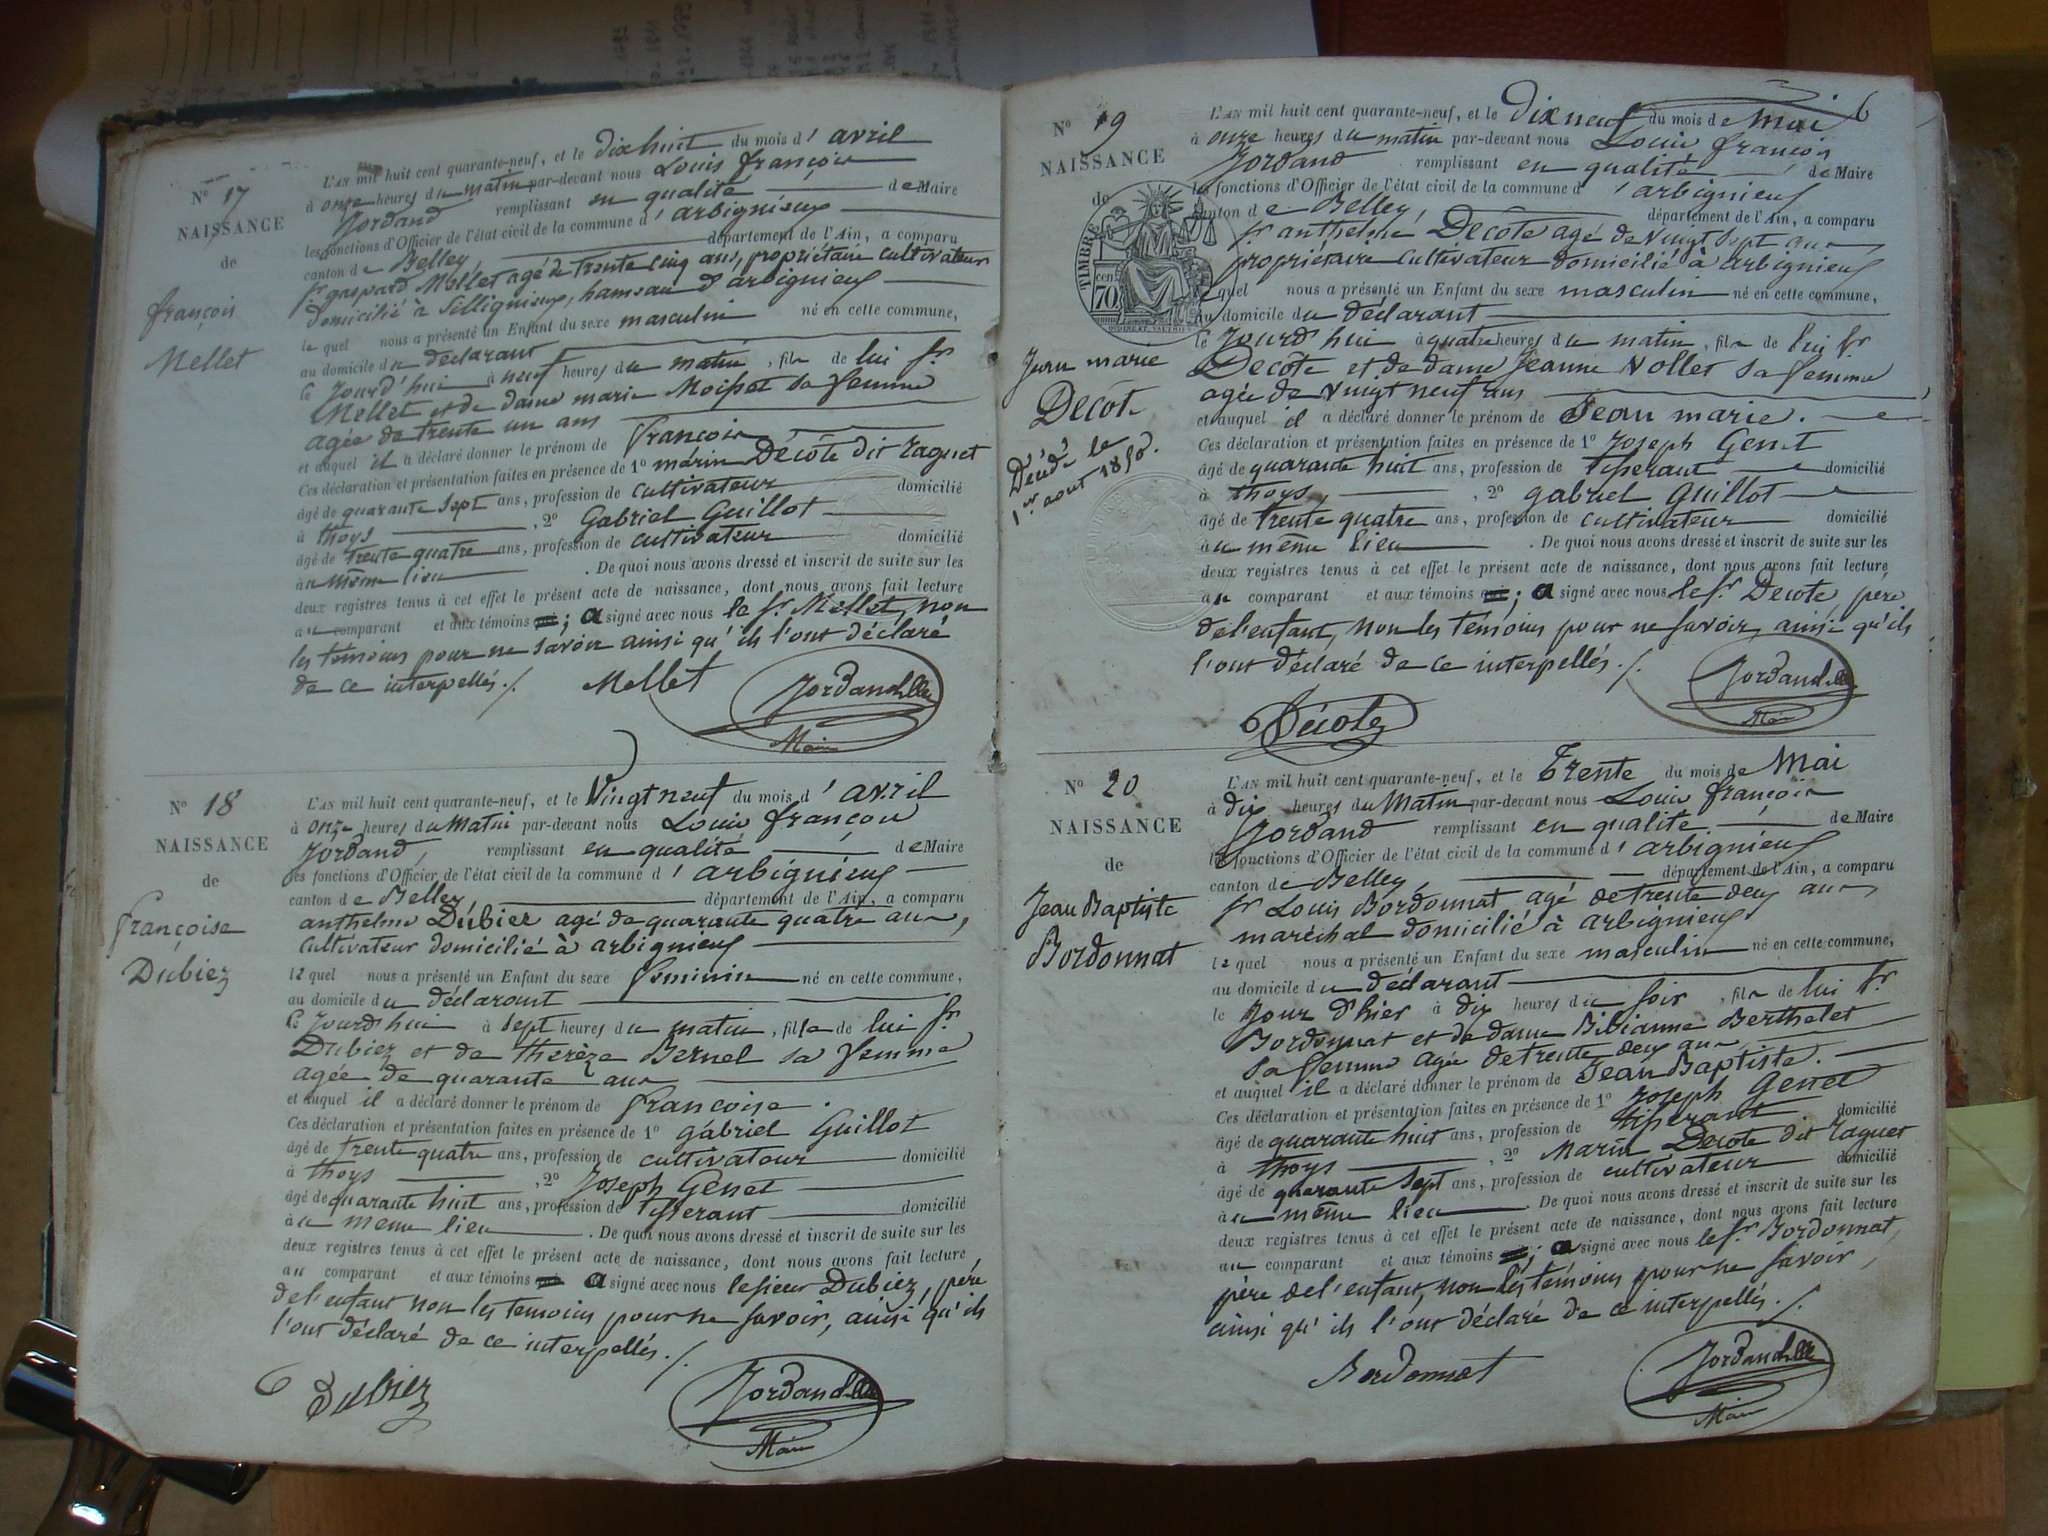 N° 17
NAISSANCE
de
françois
Mellet
L'AN mil huit cent quarante-neuf, et le dix huit du mois d' avril
à onze heures du matin par-devant nous Louis françois
Jordand remplissant en qualité de Maire
les fonctions d'Officier de l'état civil de la commune d' arbignieux
canton de Belley, département de l'Ain, a comparu
sr gaspard Mellet agé de trente cinq ans, propriétaire cultivateur
domicilié à Silligneux, hameau d'arbignieux
lequel nous a présenté un Enfant du sexe masculin né en cette commune,
au domicile du déclarant
le Jourd'hui à neuf heures du matin, fils de lui sr
Mellet et de dame marie Moissat sa femme
agée de trente un ans
et auquel il a déclaré donner le prénom de françois
Ces déclaration et présentation faites en présence de 1° marin Décôte dit raguet
âgé de quarante sept ans, profession de cultivateur domicilié
à thoys , 2° Gabriel Guillot
âgé de trente quatre ans, profession de cultivateur domicilié
au même lieu . De quoi nous avons dressé et inscrit de suite sur les
deux registres tenus à cet effet le présent acte de naissance, dont nous avons fait lecture
au comparant et aux témoins ; a signé avec nous le sr Mellet, non
les témoins pour ne savoir ainsi qu'ils l'ont déclaré
de ce interpellés ./.
Mellet Jordand
Maire
N° 18
NAISSANCE
de
françoise
Dubiez
L'AN mil huit cent quarante-neuf, et le Vingt neuf du mois d' avril
à onze heures du Matin par-devant nous Louis françois
Jordand, remplissant en qualité de Maire
les fonctions d'Officier de l'état civil de la commune d' arbignieux
canton de Belley, département de l'Ain, a comparu
anthelme Dubiez agé de quarante quatre ans,
cultivateur domicilié à arbignieux
lequel nous a présenté un Enfant du sexe feminin né en cette commune,
au domicile du déclarant
le Jourd'hui à sept heures du matin, fille de lui sr
Dubiez et de therèze Bernel sa femme
agée de quarante ans
et auquel il a déclaré donner le prénom de françoise.
Ces déclaration et présentation faites en présence de 1° gabriel Guillot
âgé de trente quatre ans, profession de cultivateur domicilié
à thoys , 2° Joseph Genet
âgé de quarante huit ans, profession de tisserant domicilié
au meme lieu . De quoi nous avons dressé et inscrit de suite sur les
deux registres tenus à cet effet le présent acte de naissance, dont nous avons fait lecture
au comparant et aux témoins a signé avec nous le sieur Dubiez, père
de l'enfant non les temoins pour ne savoir, ainsi qu'ils
l'ont déclaré de ce interpellés ./.
Dubiez Jordand
Maire
6
N° 19
NAISSANCE
de
TIMBRE
70 cen
Jean marie
Decote
Décédé le
1er aout 1850.
L'AN mil huit cent quarante-neuf, et le Dix neuf du mois de Mai
à onze heures du matin par-devant nous Louis françois
Jordand remplissant en qualité de Maire
les fonctions d'Officier de l'état civil de la commune d' arbignieux
canton de Belley, département de l'Ain, a comparu
sr anthelme Decôte agé de vingt sept ans
propriétaire cultivateur domicilié à arbignieux
lequel nous a présenté un Enfant du sexe masculin né en cette commune,
au domicile du déclarant
le Jourd'hui à quatre heures du matin, fils de lui sr
Decôte et de dame Jeanne Vollet sa femme
agée de vingt neuf ans
et auquel il a déclaré donner le prénom de Jean marie.
Ces déclaration et présentation faites en présence de 1° Joseph Genet
âgé de quarante huit ans, profession de tisserant domicilié
à thoys , 2° gabriel Guillot
âgé de trente quatre ans, profession de cultivateur domicilié
au même lieu . De quoi nous avons dressé et inscrit de suite sur les
deux registres tenus à cet effet le présent acte de naissance, dont nous avons fait lecture
au comparant et aux témoins ; a signé avec nous le sr Decote père
de l'enfant, non les témoins pour ne savoir, ainsi qu'ils
l'ont déclaré de ce interpellés ./.
Décote Jordand
Maire
N° 20
NAISSANCE
de
Jean Baptiste
Bordonnat
L'AN mil huit cent quarante-neuf, et le Trente du mois de Mai
à dix heures du Matin par-devant nous Louis françois
Jordand remplissant en qualité de Maire
les fonctions d'Officier de l'état civil de la commune d' arbignieux
canton de Belley, département de l'Ain, a comparu
sr Louis Bordonnat agé de trente deux ans
maréchal domicilié à arbignieux
lequel nous a présenté un Enfant du sexe masculin né en cette commune,
au domicile du déclarant
le Jour d'hier à dix heures du soir, fils de lui sr
Bordonnat et de dame Bibianne Berthelet
sa femme agée de trente deux ans
et auquel il a déclaré donner le prénom de Jean Baptiste.
Ces déclaration et présentation faites en présence de 1° Joseph Genet
âgé de quarante huit ans, profession de tisserant domicilié
à thoys , 2° Marin Decote dit raguet
âgé de quarante sept ans, profession de cultivateur domicilié
au même lieu . De quoi nous avons dressé et inscrit de suite sur les
deux registres tenus à cet effet le présent acte de naissance, dont nous avons fait lecture
au comparant et aux témoins ; a signé avec nous le sr Bordonnat,
père de l'enfant, non les témoins pour ne savoir,
ainsi qu'ils l'ont déclaré de ce interpellés ./.
Bordonnat Jordand
Maire